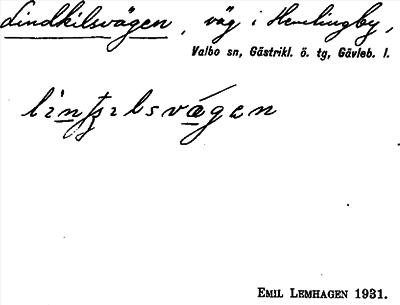 Lindkilsvägen, väg i Hemlingby,
Valbo sn, Gästrikl. ö. tg, Gävleb. l.
EMIL LEMHAGEN 1931.